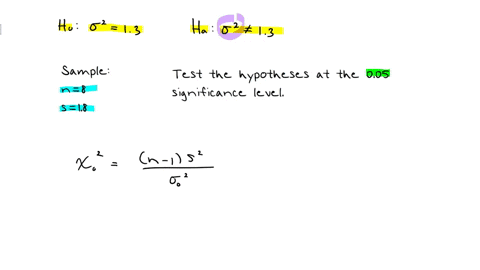 H₀: σ² = 1.3 Ha: σ² ≠ 1.3
Sample:
n=8
s=1.8
Test the hypotheses at the 0.05
significance level.
χ₀² = (n-1) s² / σ₀²